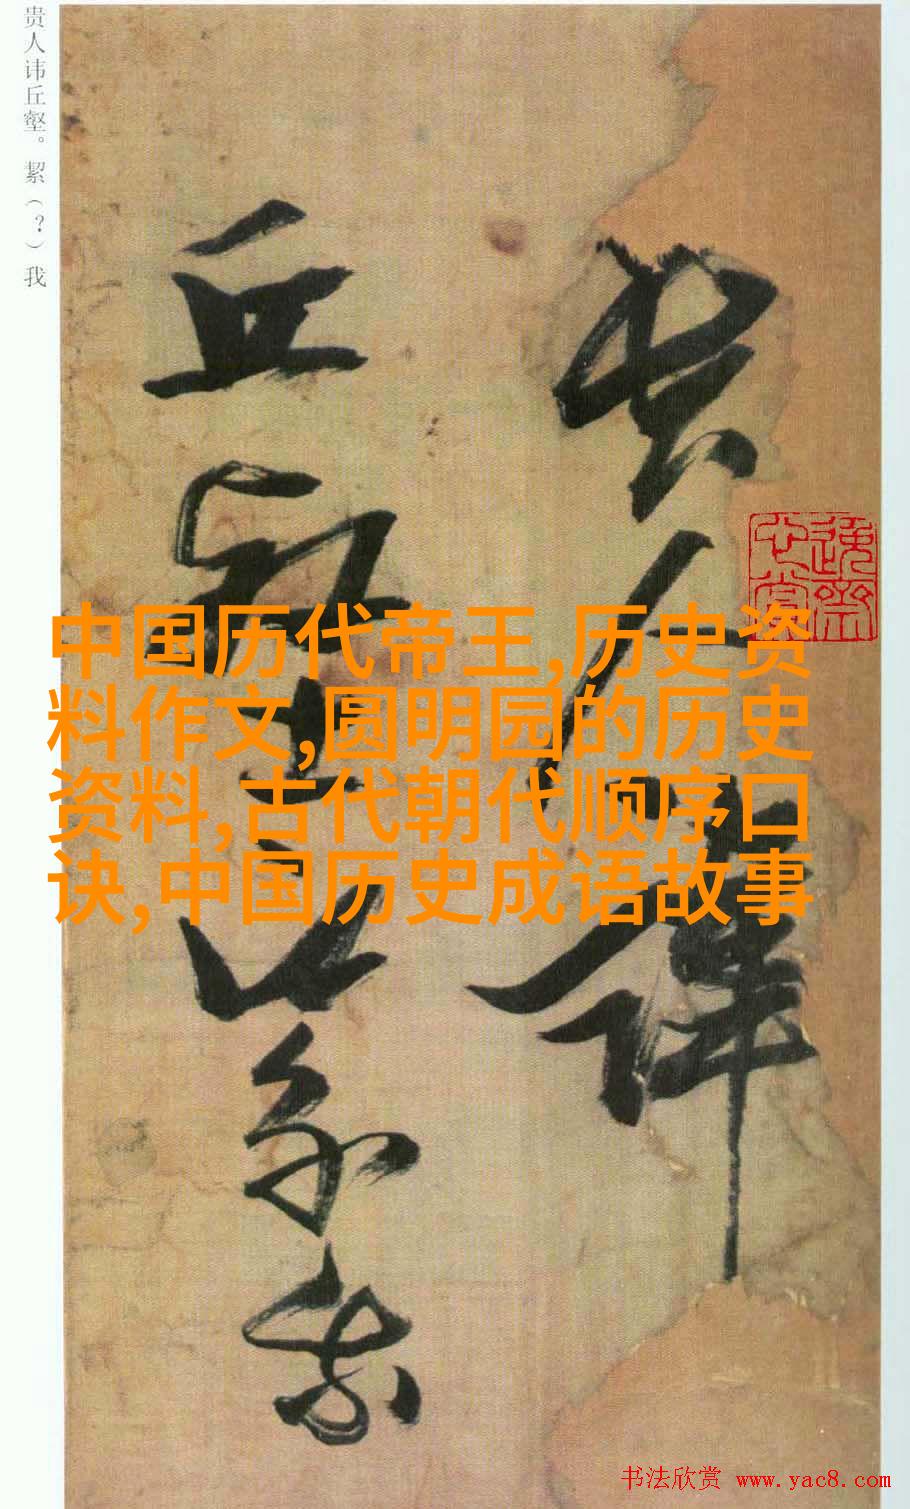 贵人讳丘壑。絜（？）我
贵人讳
丘壑
絜我
中国历代帝王,历史资
料作文,圆明园的历史
资料,古代朝代顺序口
诀,中国历史成语故事
书法欣赏 www.yac8.com